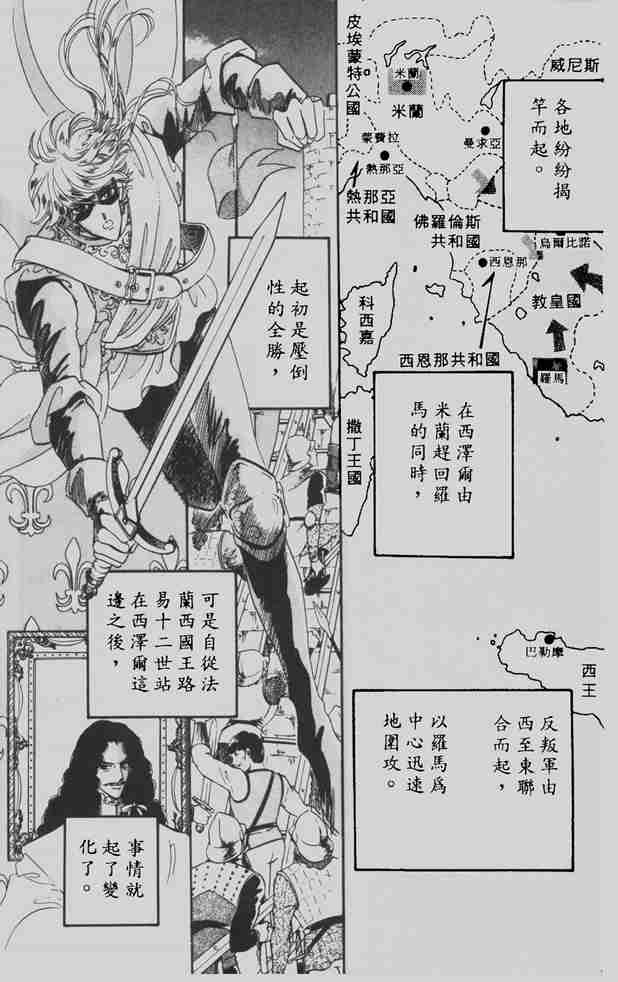 各地紛紛揭
竿而起。
在西澤爾由
米蘭趕回羅
馬的同時，
反叛軍由
西至東聯
合而起，
以羅馬爲
中心迅速
地圍攻。
起初是壓倒
性的全勝，
可是自從法
蘭西國王路
易十二世站
在西澤爾這
邊之後，
事情就
起了變
化了。
皮埃蒙特公國
米蘭
米蘭
威尼斯
蒙費拉
曼求亞
熱那亞
熱那亞
共和國
佛羅倫斯
共和國
烏爾比諾
西恩那
教皇國
西恩那共和國
羅馬
科西嘉
撒丁王國
巴勒摩
西
王